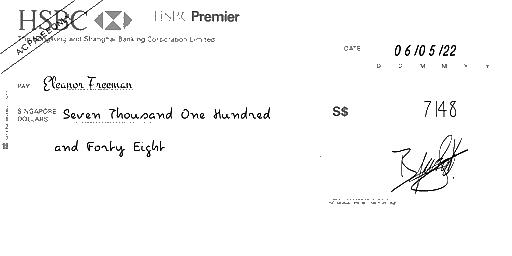 HSBC HSBC Premier
The Hongkong and Shanghai Banking Corporation Limited
AC PAYEE ONLY
DATE 06/05/22
D D M M Y Y
PAY Eleanor Freeman
SINGAPORE DOLLARS Seven Thousand One Hundred
and Forty Eight
S$ 7148